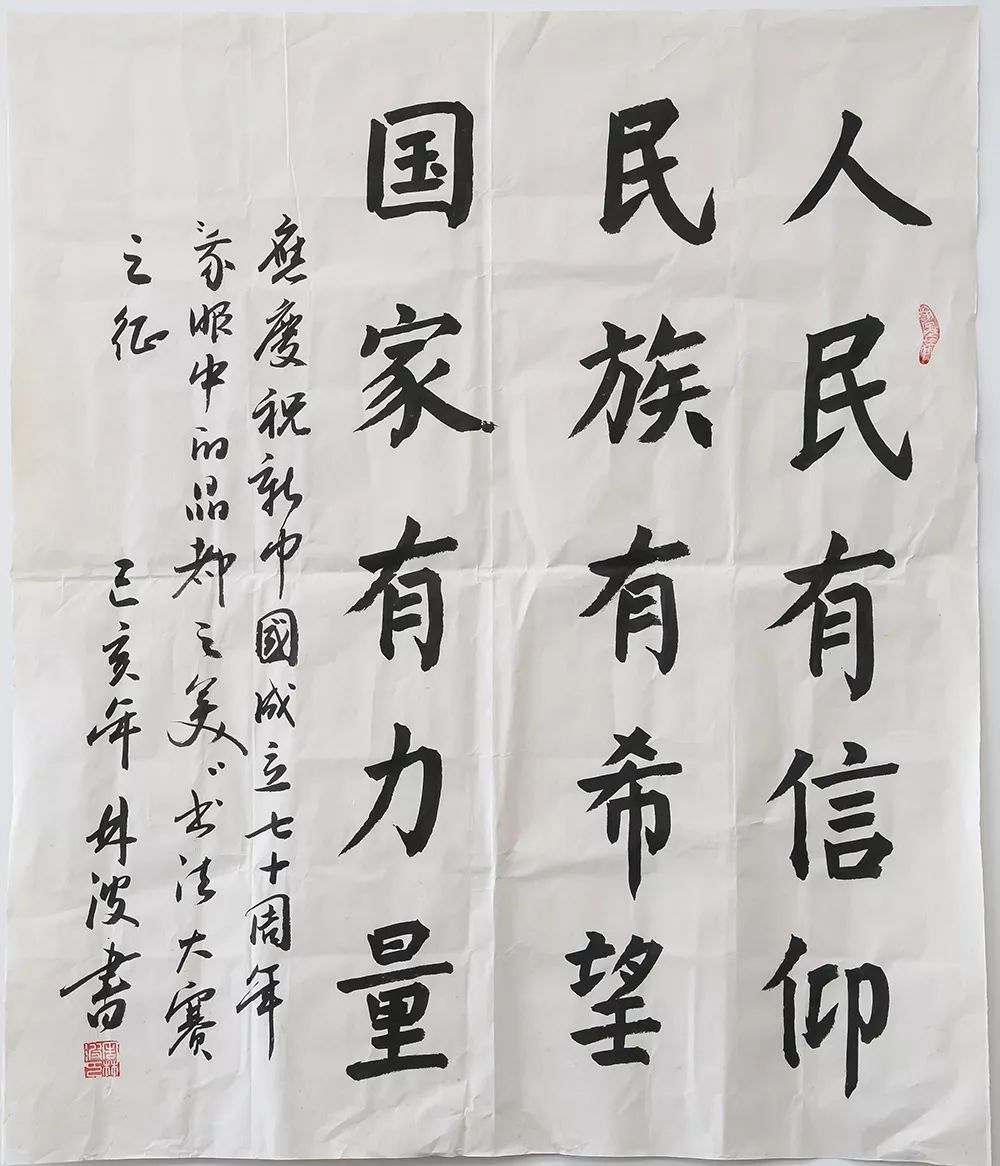 人民有信仰
民族有希望
国家有力量
應慶祝新中國成立七十周年
“我眼中的晶都之美”书法大赛
之征 己亥年 林波書
周林波印